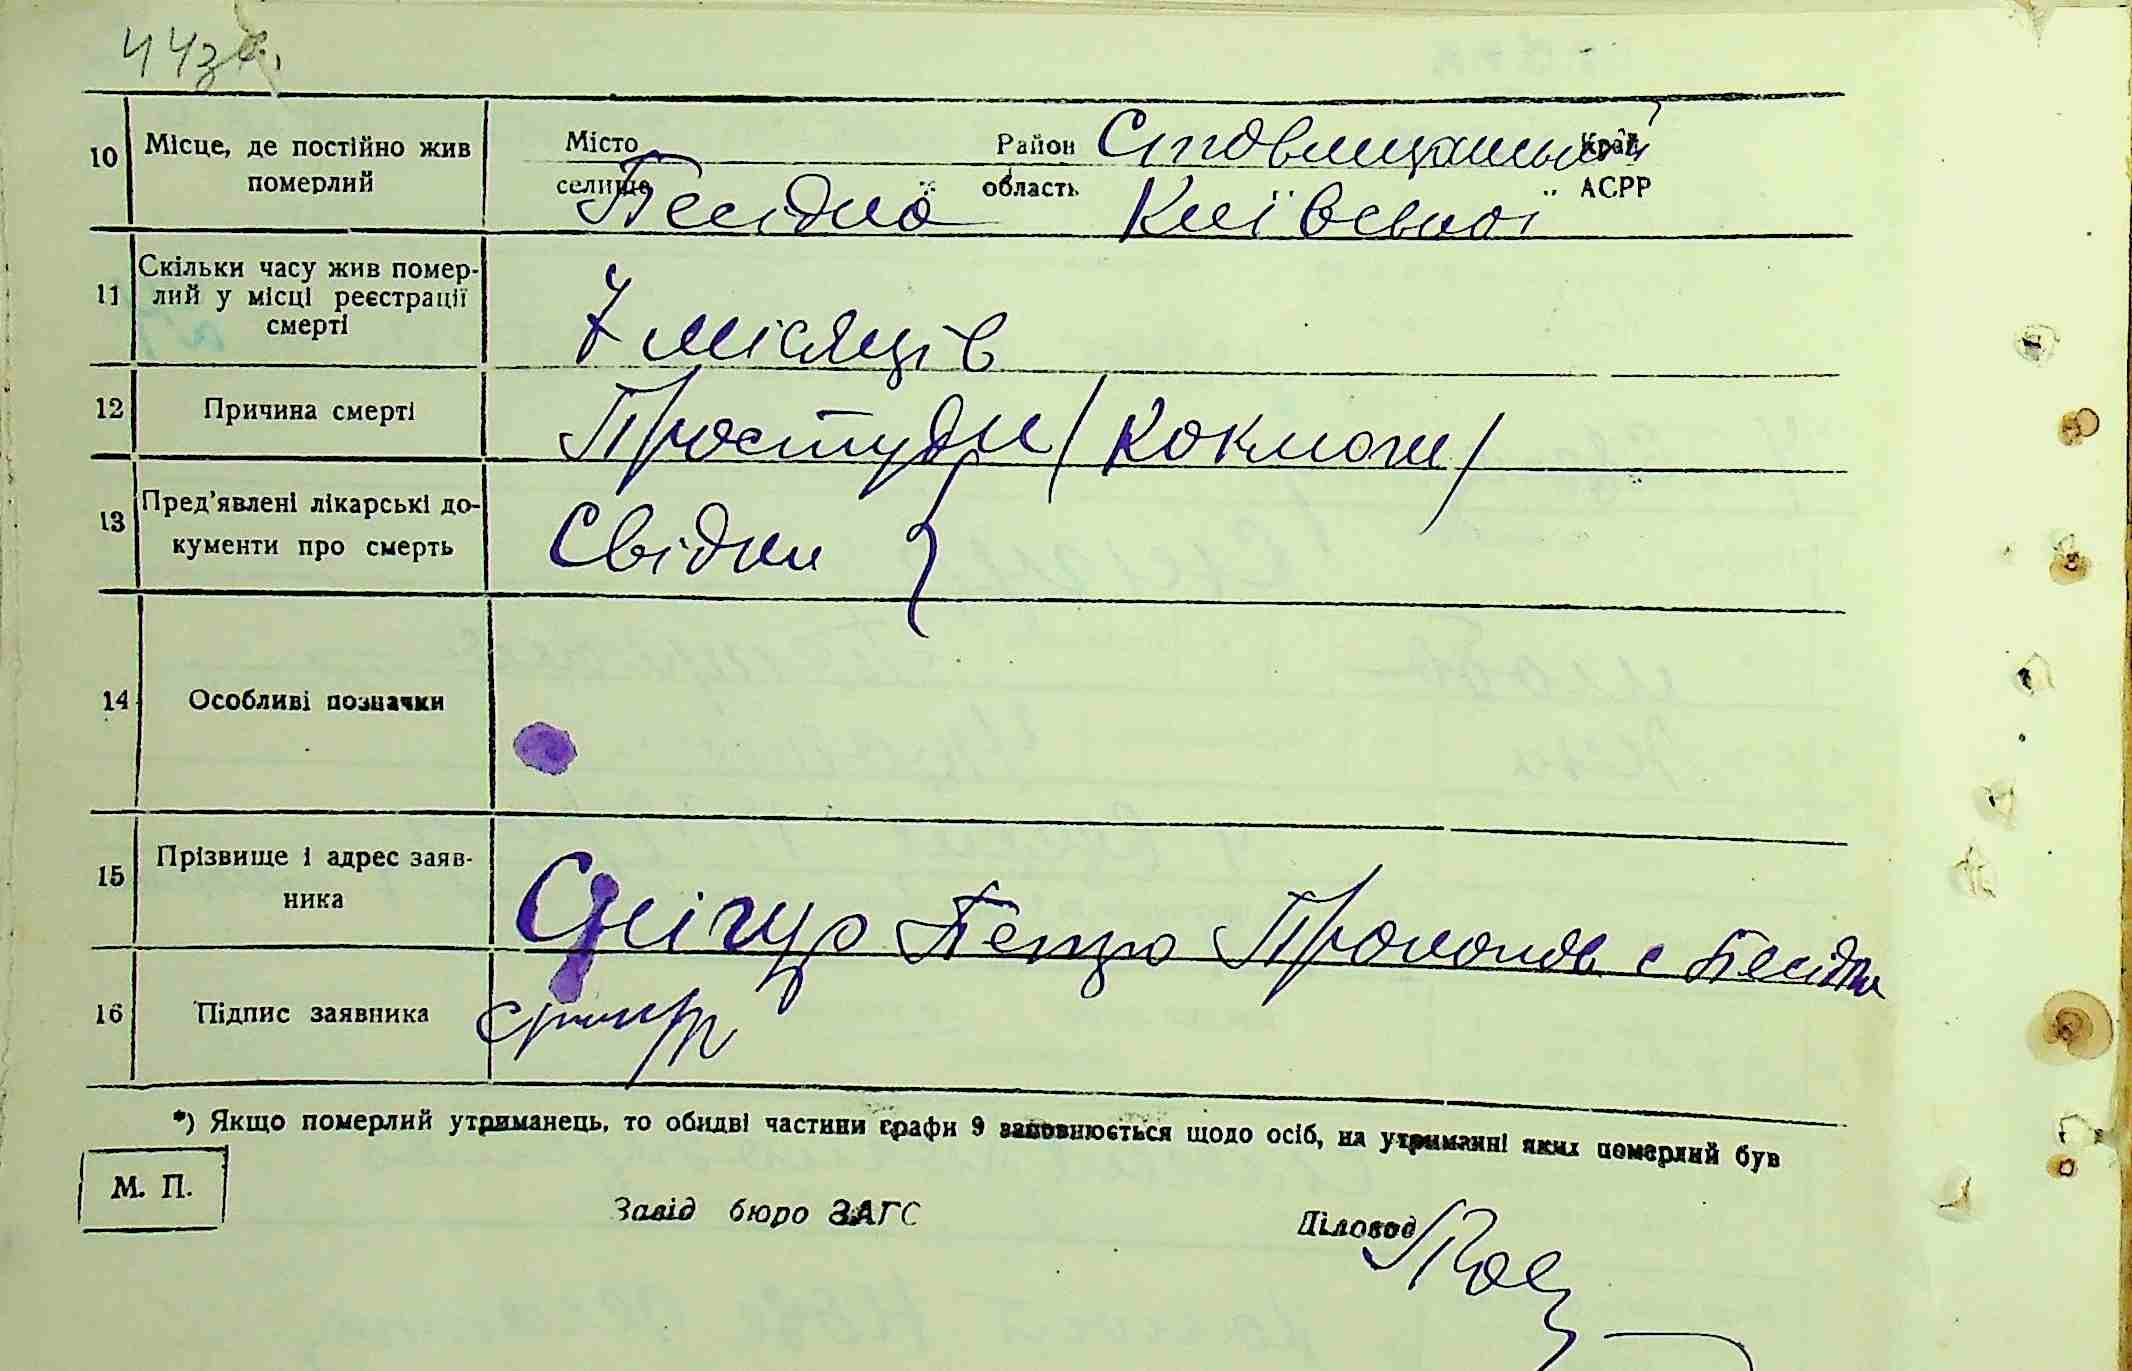 44зв.
10 Місце, де постійно жив померлий
Місто Район Ставищанський Край
селище Бесідка область Київської АСРР
11 Скільки часу жив помер-
лий у місці реєстрації
смерті
7 місяців
12 Причина смерті Простуди / Коклюш /
13 Пред'явлені лікарські до-
кументи про смерть
Свідки
14 Особливі позначки
15 Прізвище і адрес заяв-
ника
Снігур Петро Прокопов с Бесідки
16 Підпис заявника
*) Якщо померлий утриманець, то обидві частини графи 9 заповнюється щодо осіб, на утриманні яких померлий був
М. П.
Завід бюро ЗАГС Діловод